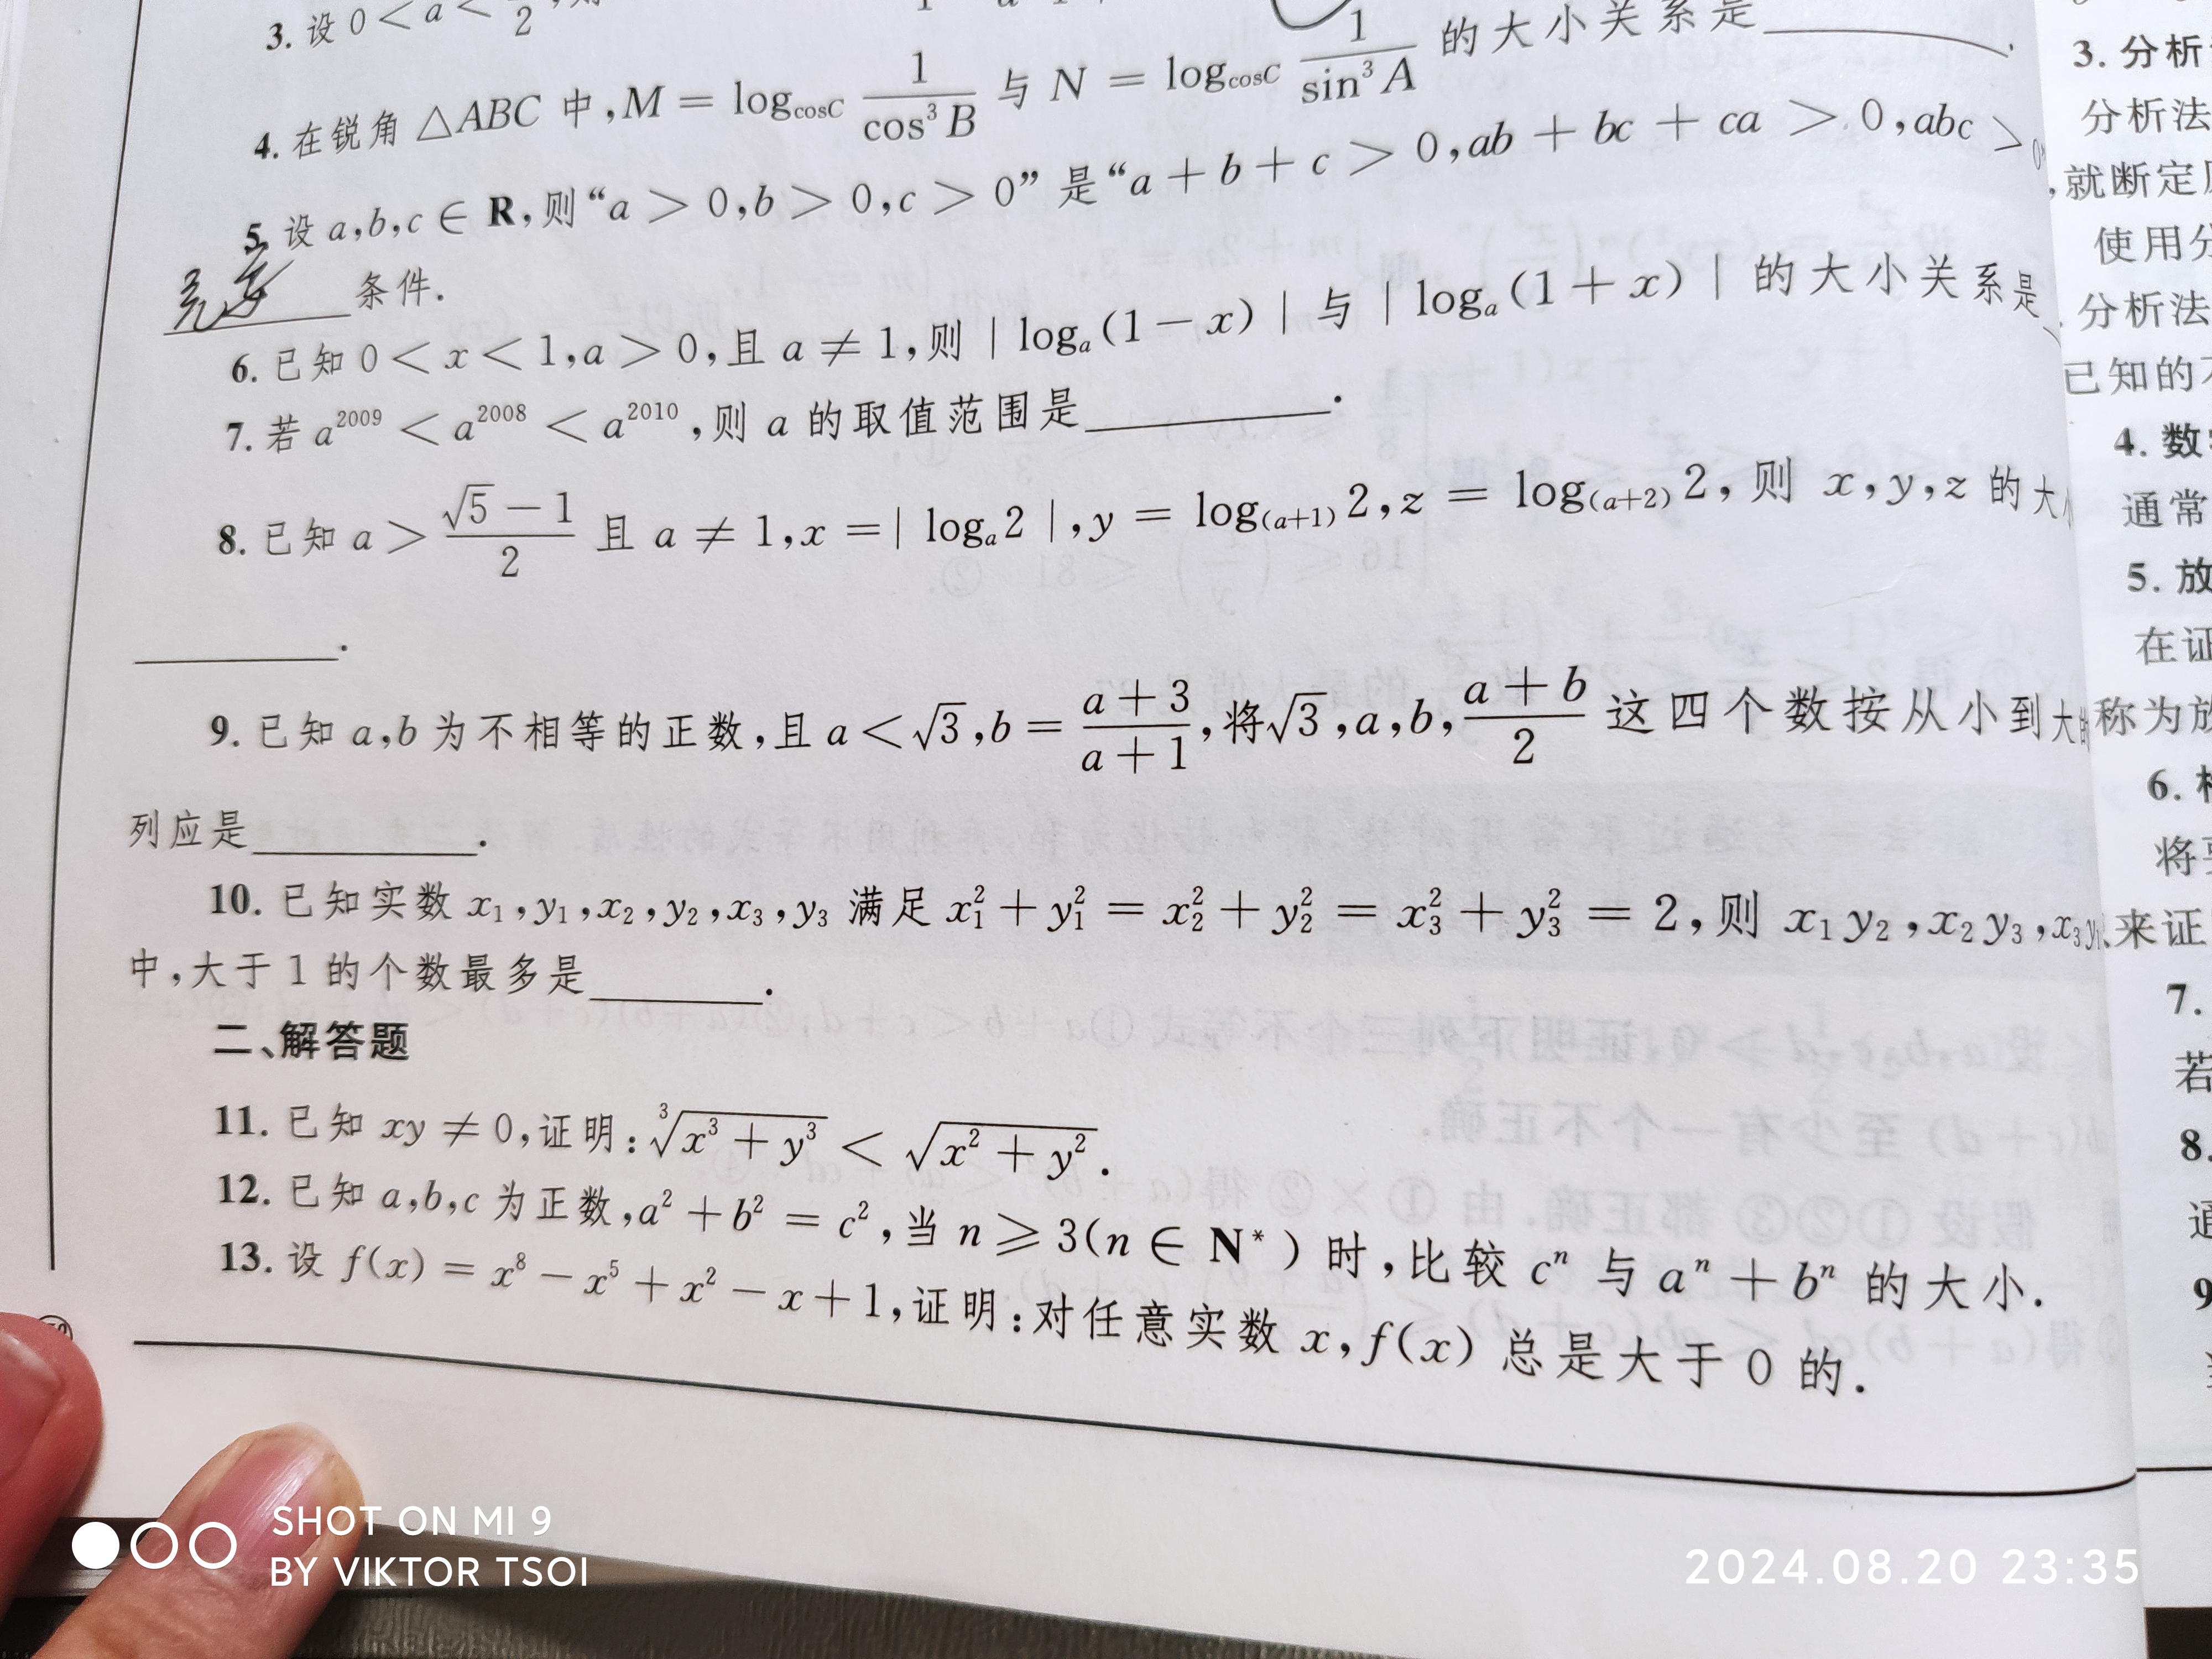 3. 设 0 < a < 2
4. 在锐角 △ABC 中, M = log_{cosC} \frac{1}{cos³B} 与 N = log_{cosC} \frac{1}{sin³A} 的大小关系是______.
5. 设 a,b,c ∈ R, 则“a > 0, b > 0, c > 0”是“a + b + c > 0, ab + bc + ca > 0, abc > 0”
充要 条件.
6. 已知 0 < x < 1, a > 0, 且 a ≠ 1, 则 | logₐ(1 − x) | 与 | logₐ(1 + x) | 的大小关系是
7. 若 a²⁰⁰⁹ < a²⁰⁰⁸ < a²⁰¹⁰, 则 a 的取值范围是______.
8. 已知 a > \frac{√5 − 1}{2} 且 a ≠ 1, x = | logₐ2 |, y = log₍ₐ₊₁₎2, z = log₍ₐ₊₂₎2, 则 x, y, z 的大
______.
9. 已知 a,b 为不相等的正数, 且 a < √3, b = \frac{a + 3}{a + 1}, 将 √3, a, b, \frac{a + b}{2} 这四个数按从小到大的
列应是______.
10. 已知实数 x₁, y₁, x₂, y₂, x₃, y₃ 满足 x₁² + y₁² = x₂² + y₂² = x₃² + y₃² = 2, 则 x₁y₂, x₂y₃, x₃y₁
中, 大于 1 的个数最多是______.
二、解答题
11. 已知 xy ≠ 0, 证明: ∛(x³ + y³) < √(x² + y²).
12. 已知 a,b,c 为正数, a² + b² = c², 当 n ⩾ 3(n ∈ N*) 时, 比较 cⁿ 与 aⁿ + bⁿ 的大小.
13. 设 f(x) = x⁸ − x⁵ + x² − x + 1, 证明: 对任意实数 x, f(x) 总是大于 0 的.
3. 分析
分析法
, 就断定
使用分
分析法
已知的
4. 数
通常
5. 放
在证
称为放
6.
将
来证
7.
若
8.
通
9
SHOT ON MI 9
BY VIKTOR TSOI
2024.08.20 23:35